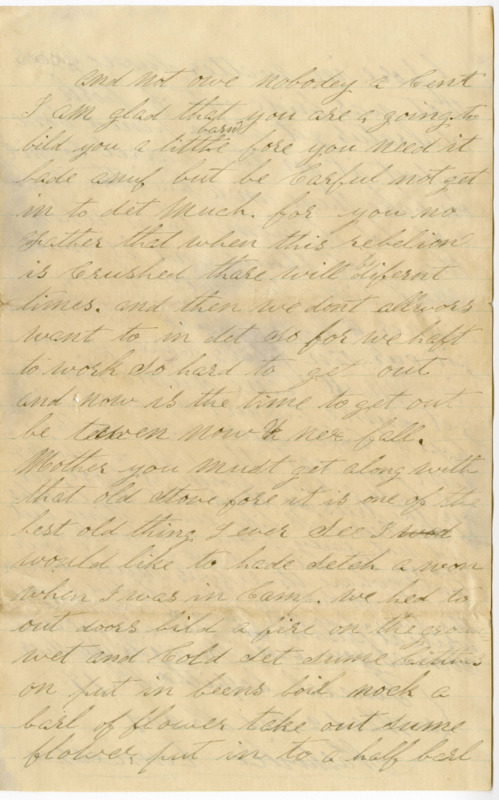 and not owe nobodey a Cent
I am glad that you are a going to
bild you a little barn fore you need it
bade anuf but be Carful not get
in to det much. for you no
Father that when this rebelion
is Crushed thare will difernt
times. and then we dont allwors
want to in det so for we haft
to work so hard to get out
and now is the time to get out
be now & nex fall.
Mother you must get along with
that old stove fore it is one of the
best old thing I ever see I
would like to hade setch a won
when I was in Camp. we hed to
out doors bild a fire on the grou
wet and Cold set sume
on put in beens boil nock a
barl of flower take out sume
flower put in to a half barl